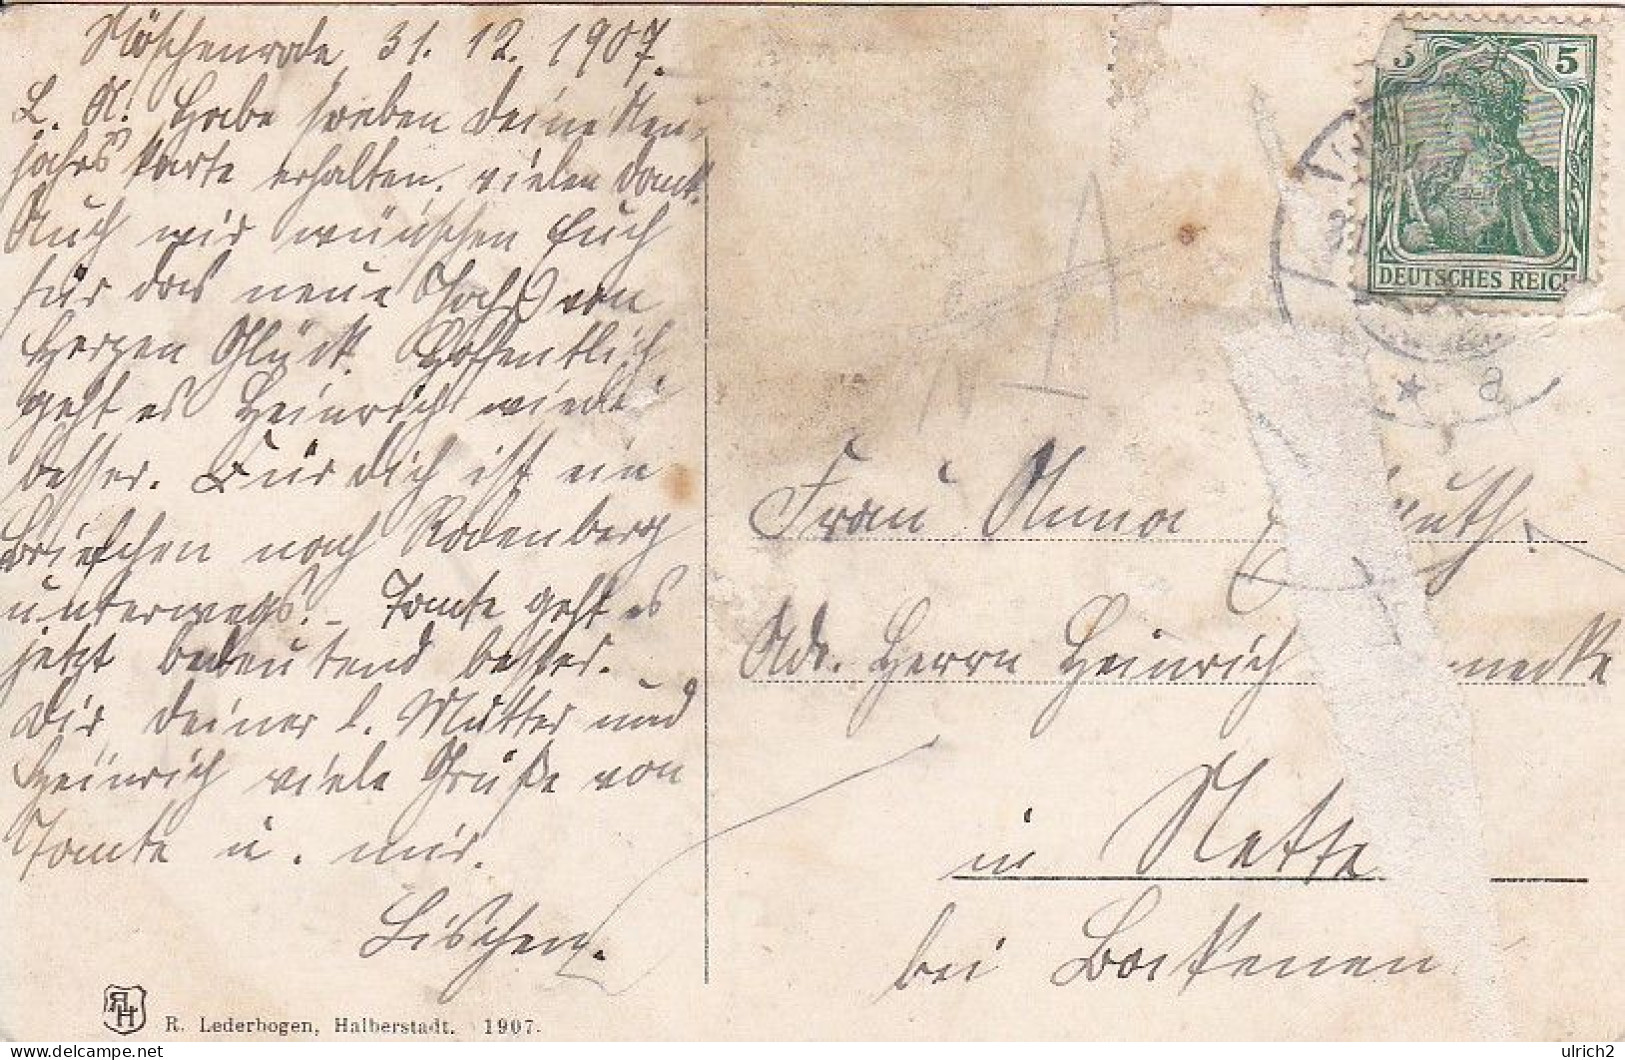 Nöschenrode 31. 12. 1907.
L. A! Habe soeben deine Neu-
jahrskarte erhalten. vielen Dank.
Auch wir wünschen Euch
für das neue Jahr von
Herzen Glück. Hoffentlich
geht es Heinrich wieder
besser. Für Dich ist ein
Briefchen nach Rodenberg
unterwegs. - Tante geht es
jetzt bedeutend besser.
Dir, deiner l. Mutter und
Heinrich viele Grüße von
Tante u. mir.
Lischen.
RLH
R. Lederbogen, Halberstadt. 1907.
5 5
DEUTSCHES REICH
* a
Frau Anna
Adr. Herrn Heinrich necke
in Nette
bei Bockenem
ulrich2